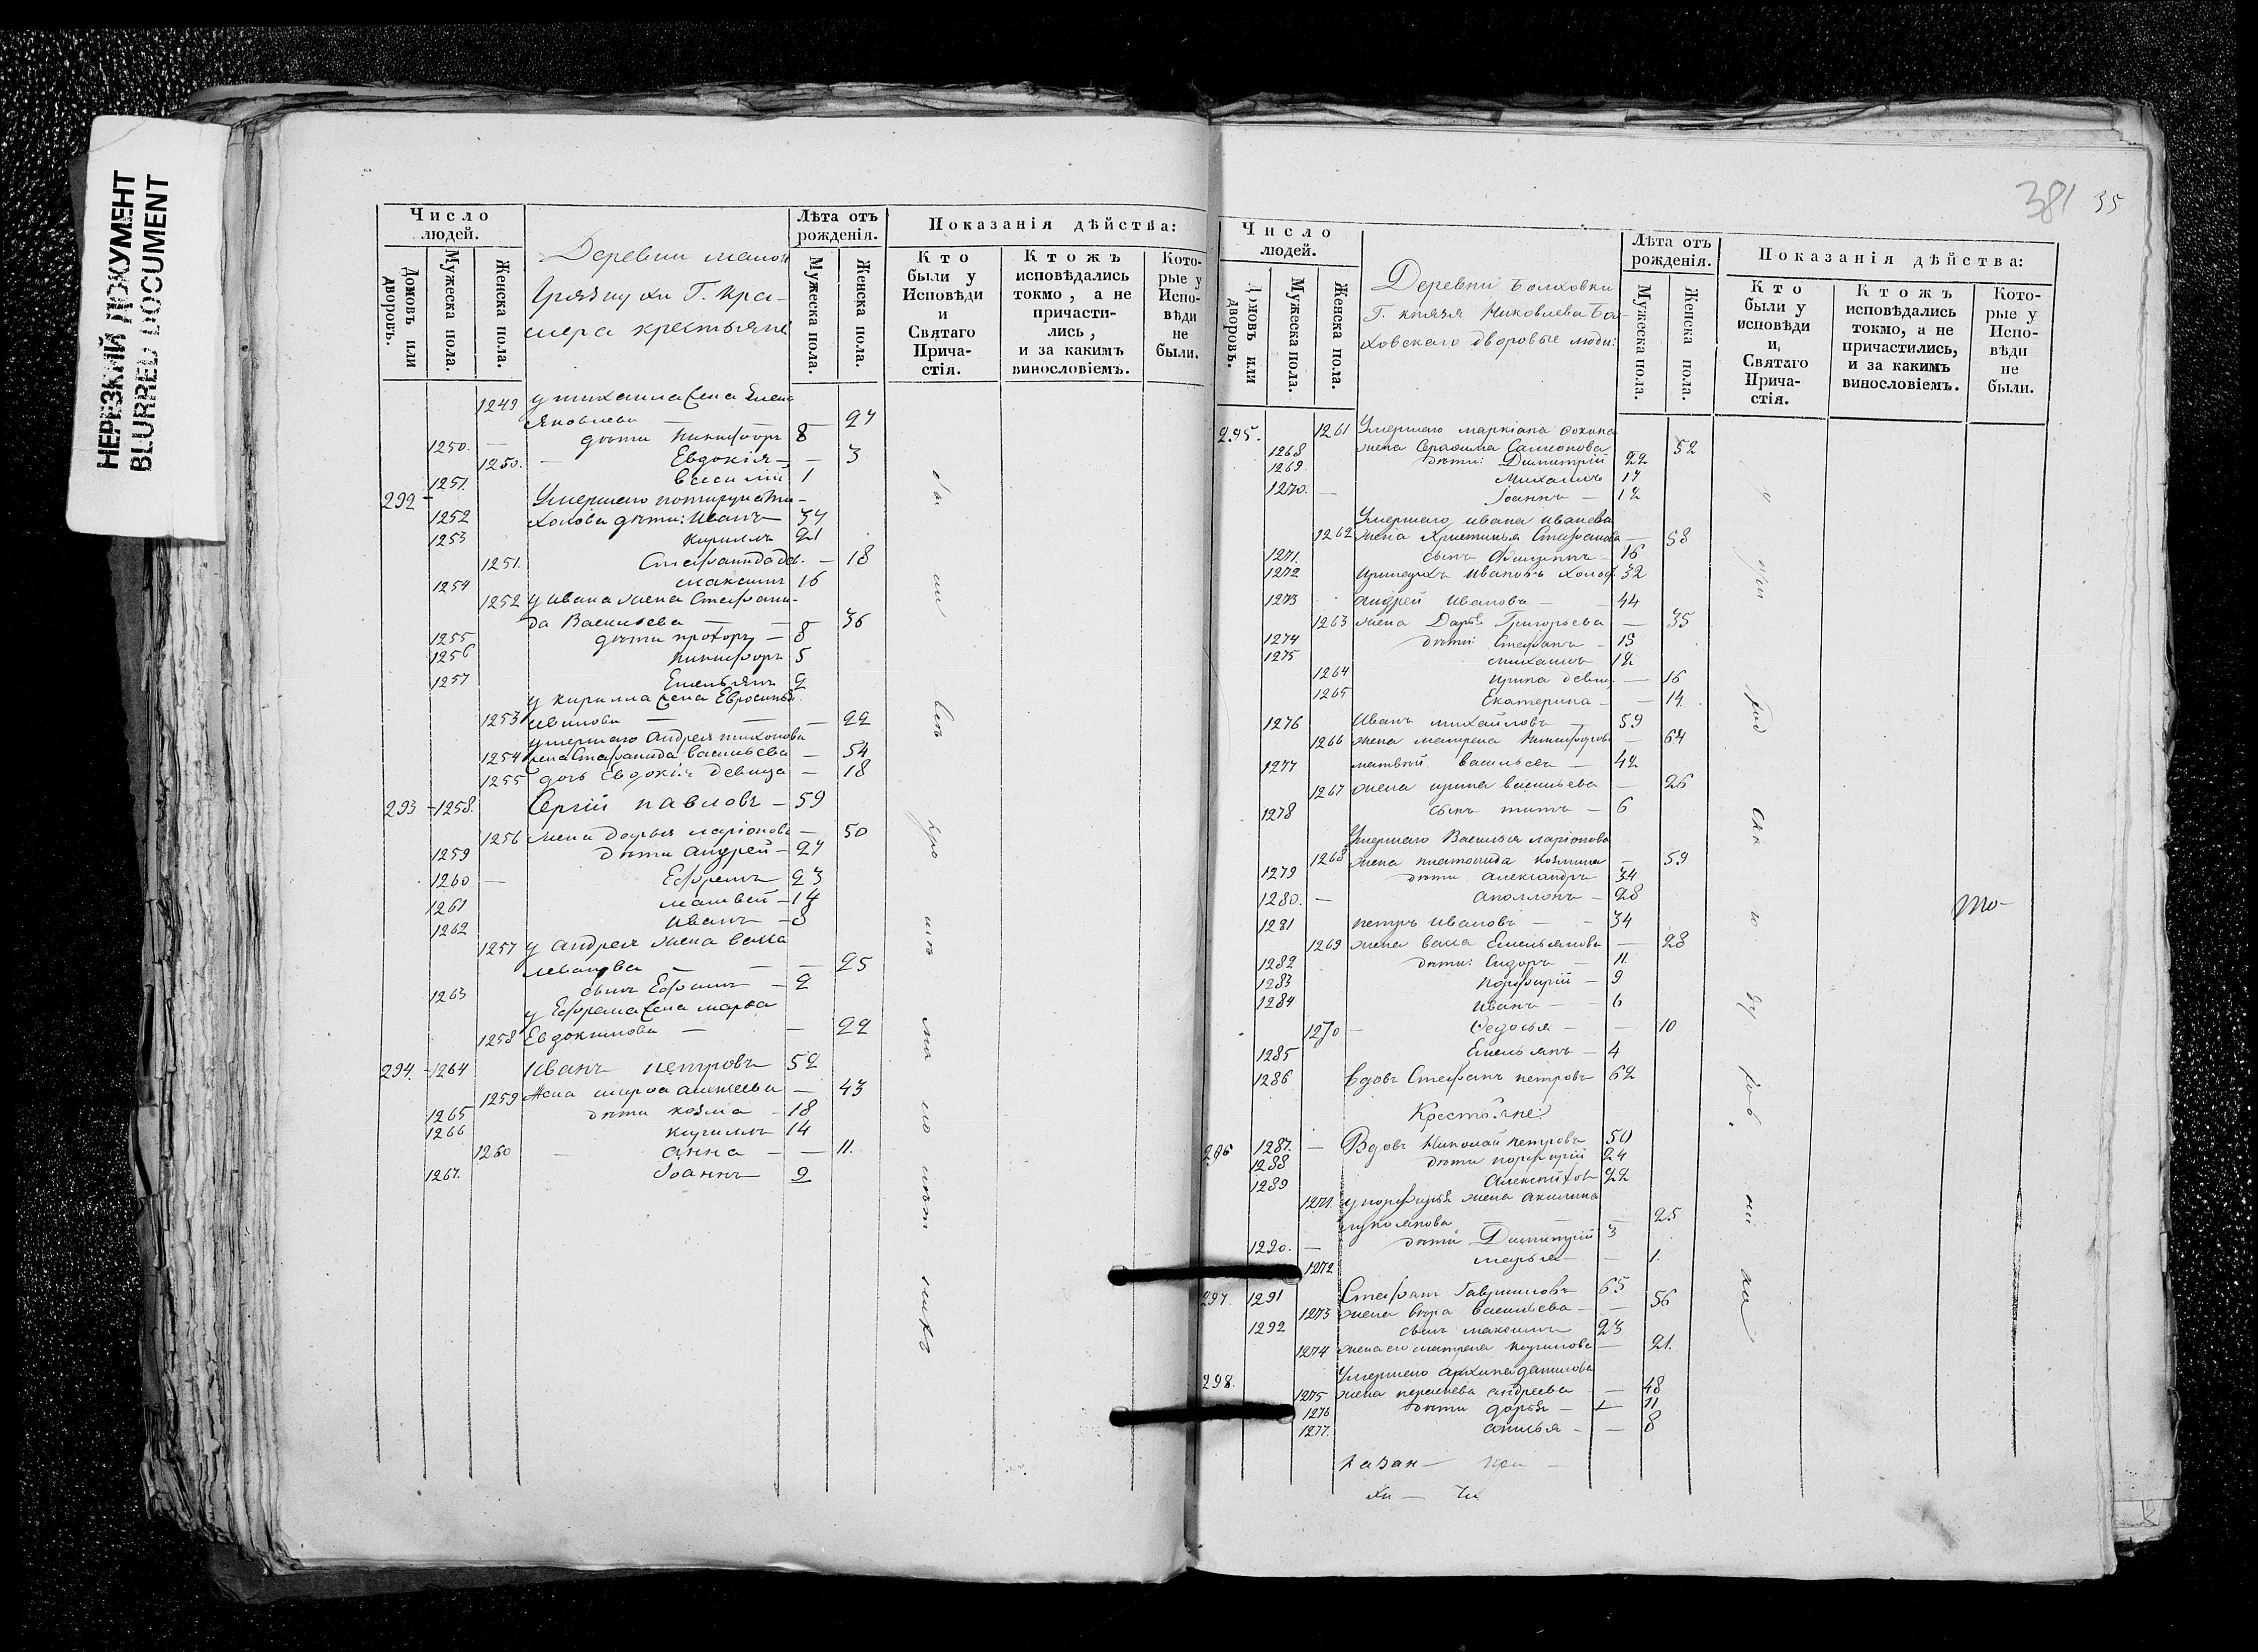 НЕРЕЗКИЙ ДОКУМЕНТ
BLURRED DOCUMENT
Число людей.
Домовъ или дворовъ.
Мужеска пола.
Женска пола.
Деревни малой
Грязнухи Г. Кра-
мера крестьяне
Лѣта отъ рожденія.
Мужеска пола.
Женска пола.
Показанія дѣйства:
Кто были у Исповѣди и Святаго Прича-стія.
Ктожъ исповѣдались токмо, а не причасти-лись, и за какимъ винословіемъ.
Кото-рые у Испо-вѣди не были.
1249 у михаила жена Елена
Яковлева — — 27
1250. — дѣти Никифоръ 8
1250. — Евдокія — — 3
1251. Василій 1
292 — Умершаго
1252 дѣти: Иванъ 37
1253 Кириллъ 21
1251. Стефанида дѣв. — 18
1254 Максимъ 16
1252 у ивана жена Стефани-
да Васильева — — 36
1255 дѣти прохоръ — 8
1256 Никифоръ 5
1257 Емельянъ 2
у кирилла жена Евросинья
1253 Иванова — — — 22
умершаго Андрея тихонова
1254 жена Стефанида васильева — 54
1255 дочь Евдокія девица — 18
293 — 1258. Сергій павловъ — 59
1256 жена Дарья ларіонова — 50
1259 дѣти Андрей — 27
1260 — Ефремъ 23
1261 матвей — 14
1262 иванъ — 8
1257 у андрея жена васса
Иванова — — — 25
1263 сынъ Ефимъ — 2
у Ефрема жена марѳа
1258 Евдокимова — — 22
294. — 1264 Иванъ петровъ 52
1259 Жена марѳа алексеева — 43
1265 дѣти козма — 18
1266 кириллъ 14
1260 — анна — — 11.
1267. Іоаннъ 2
381 35
Число людей.
Домовъ или дворовъ.
Мужеска пола.
Женска пола.
Деревни Болховки
Г. князя Николаева Бо-
ховскаго дворовые люди:
Лѣта отъ рожденія.
Мужеска пола.
Женска пола.
Показанія дѣйства:
Кто были у исповѣди и Святаго Прича-стія.
Ктожъ исповѣдались токмо, а не причастились, и за какимъ винословіемъ.
Кото-рые у Испо-вѣди не были.
295. 1261 Умершаго маркіана
жена Серафима Самсонова 52
1268 дѣти: Димитрій 22
1269. Михаилъ 17
1270. — Іоаннъ — 12
Умершаго ивана иванова
1262 жена Христинья Стефанова — 58
1271. сынъ Филиппъ — 16
1272 Ивановъ холос. 32
1273 Андрей Ивановъ — 44
1263 жена Дарья Григорьева — 35
1274 дѣти: Стефанъ — 15
1275 михаилъ 12
1264 ирина девиц. — 16
1265 Екатерина — — 14.
1276 Иванъ михайловъ — 59
1266 жена матрена Никифорова — 64
1277 матвей васильевъ — 42
1267 жена ирина васильева — 26
1278 сынъ титъ — 6
Умершаго Василья ларіонова
1268 жена платонида козмина — 59
1279 дѣти Александръ 34
1280. — Аполлонъ — 28
1281 петръ ивановъ — — 34
1269 жена васса Емельянова — 28
1282 дѣти: Сидоръ — 11.
1283 порфирій — 9
1284 Иванъ — — 6
1270 — Ѳедосья — — 10
1285 Емельянъ — 4
1286 вдовъ Стефанъ петровъ 62
Крестьяне:
296 1287. — Вдовъ Николай петровъ 50
1288 дѣти порфирій 24
1289 22
1271. у порфирья жена акилина
— — 25
1290. — дѣти Димитрій 3
1272 марья — — 1.
297. 1291 Стефанъ Гавриловъ 65
1273 жена вѣра васильева — — 56
1292 сынъ максимъ 23
1274 жена его матрена кирилова — 21.
298. Умершаго архипа данилова
1275 жена андреева — 48
1276 дѣти дарья — — 11
1277. — — 8